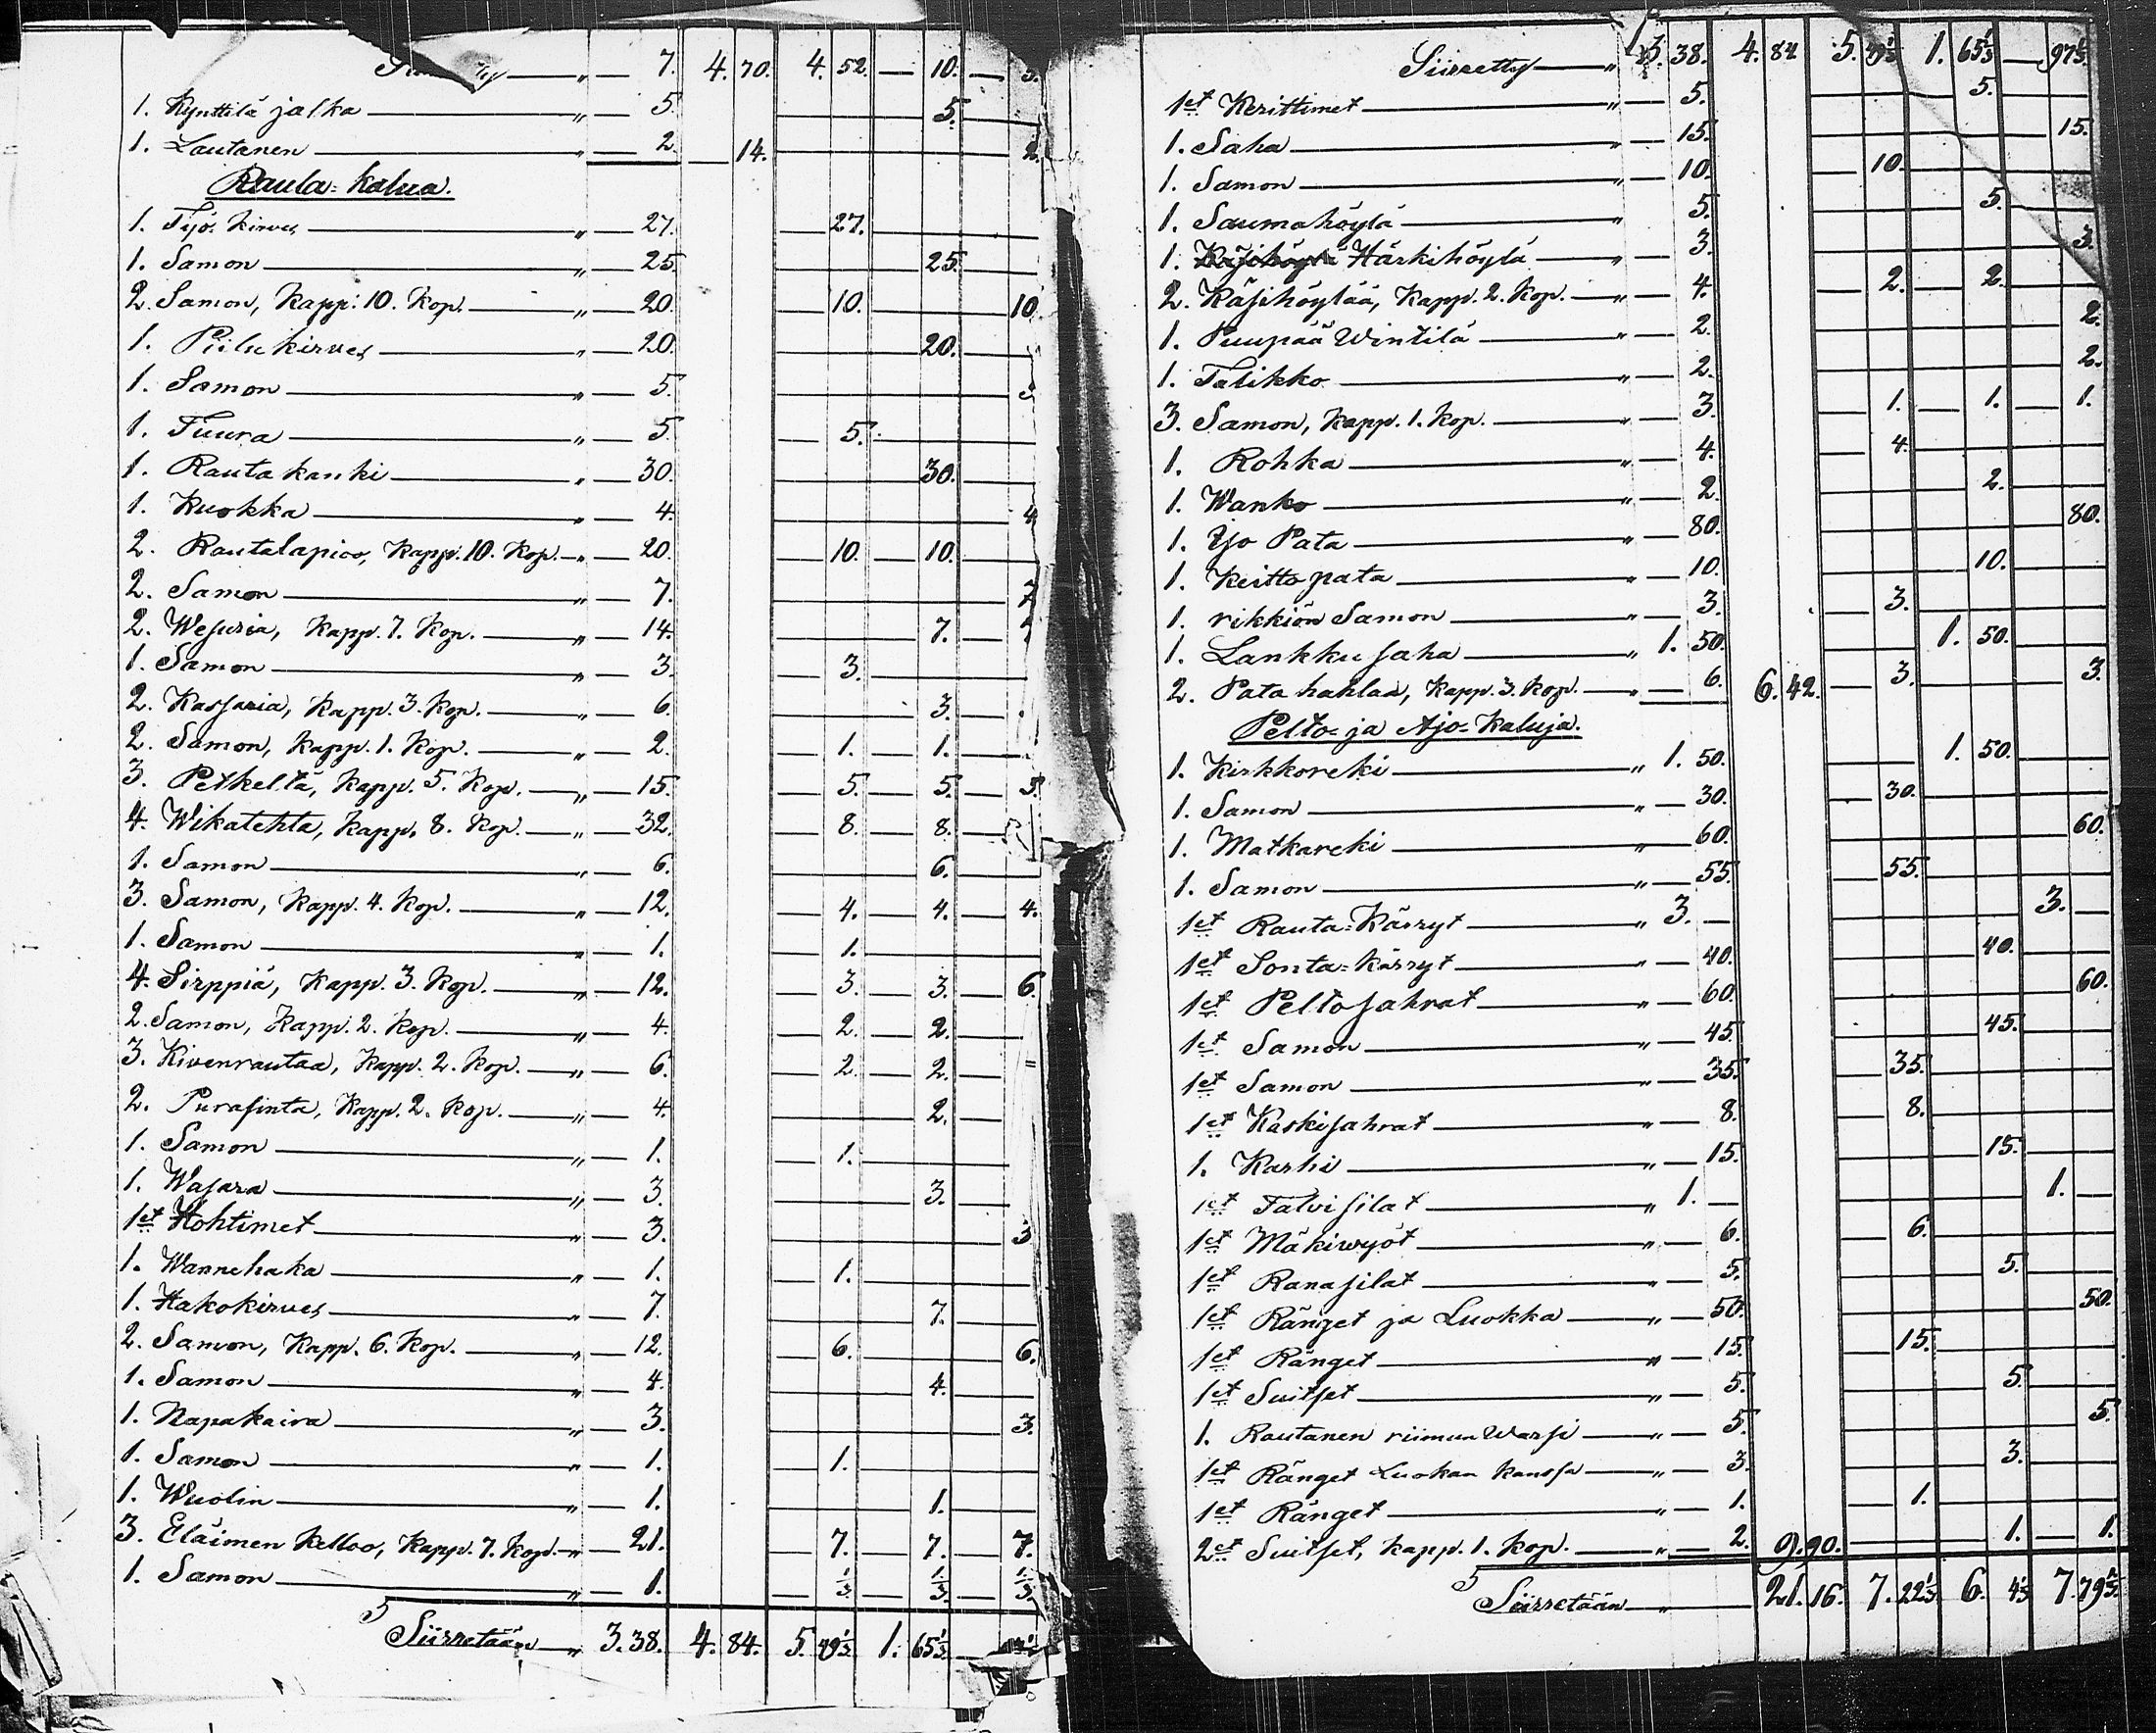 7. 4. 70. 4. 52. — 10. —
1. Kynttilä jalka — „ — 5. — 5. —
1. Lautanen — „ — 2. — 14. — 2.
Rauta-kalua.
1. Työ kirves — „ — 27. — 27. —
1. Samon — „ — 25. — 25. —
2. Samon, Kapp. 10. Kop. — „ — 20. — 10. — 10.
1. Piilukirves — „ — 20. — 20. —
1. Samon — „ — 5. —
1. Tuura — „ — 5. — 5. —
1. Rautakanki — „ — 30. — 30. —
1. Kuokka — „ — 4. — 4
2. Rautalapioo, Kapp. 10. Kop. — „ — 20. — 10. — 10. —
2. Samon — „ — 7. — 7
2. Wesuria, Kapp. 7. Kop. — „ — 14. — 7. —
1. Samon — „ — 3. — 3. —
2. Kassaria, Kapp. 3. Kop. — „ — 6. — 3. —
2. Samon, Kapp. 1. Kop. — „ — 2. — 1. — 1. —
3. Petkeltä, Kapp. 5. Kop. — „ — 15. — 5. — 5. — 5.
4. Wikatehta, Kapp. 8. Kop. — „ — 32. — 8. — 8. —
1. Samon — „ — 6. — 6. —
3. Samon, Kapp. 4. Kop. — „ — 12. — 4. — 4. — 4.
1. Samon — „ — 1. — 1. —
4. Sirppiä, Kapp. 3. Kop. — „ — 12. — 3. — 3. — 6.
2. Samon, Kapp. 2. Kop. — „ — 4. — 2. — 2. —
3. Kivenrautaa, Kapp. 2. Kop. — „ — 6. — 2. — 2. —
2. Purasinta, Kapp. 2. Kop. — „ — 4. — 2. —
1. Samon — „ — 1. — 1. —
1. Wasara — „ — 3. — 3. —
1et Hohtimet — „ — 3. — 3
1. Wannehaka — „ — 1. — 1. —
1. Hakokirves — „ — 7. — 7. —
2. Samon, Kapp. 6. Kop. — „ — 12. — 6. — 6.
1. Samon — „ — 4. — 4. —
1. Napakaira — „ — 3. — 3.
1. Samon — „ — 1. — 1. —
1. Wuolin — „ — 1. — 1. —
3. Eläimen kelloo, Kapp. 7. Kop. — „ — 21. — 7. — 7. — 7.
1. Samon — „ — 1. — 1/3 — 1/3 — 1/3
Siirretään — „ 3. 38. 4. 84. 5. 1. 65 1/3 —
Siirretty — „ 38. 4. 84 5. 1. 65 1/3 — 97 1/3
1et Kerittimet — „ — 5. — 5. —
1. Saha — „ — 15. — 15.
1. Samon — „ — 10. — 10. —
1. Saumahöylä — „ — 5. — 5. —
1. Käsihöylä Härkihöylä — „ — 3. — 3.
2. Käsihöylää, Kapp. 2. Kop. — „ — 4. — 2. — 2. —
1. Puupää Wintilä — „ — 2. — 2.
1. Talikko — „ — 2. — 2.
3. Samon, Kapp. 1. Kop. — „ — 3. — 1. — 1. — 1.
1. Rohka — „ — 4. — 4. —
1. Wanko — „ — 2. — 2. —
1. Iso Pata — „ — 80. — 80.
1. Keittopata — „ — 10. — 10. —
1. rikkiön Samon — „ — 3. — 3. —
1. Lankkusaha — „ 1. 50. 1. 50. —
2. Pata hahlaa, Kapp. 3. Kop. — „ — 6. 6. 42. — 3. — 3.
Pelto- ja Ajo-Kaluja.
1. Kirkkoreki — „ 1. 50. 1. 50. —
1. Samon — „ — 30. — 30. —
1. Matkareki — „ — 60. — 60.
1. Samon — „ — 55. — 55. —
1et Rauta-Kärryt — „ 3. — 3. —
1et Sonta-Kärryt — „ — 40. — 40. —
1et Peltosahrat — „ — 60. — 60.
1et Samon — „ — 45. — 45. —
1et Samon — „ — 35. — 35. —
1et Kaskisahrat — „ — 8. — 8. —
1. Karhi — „ — 15. — 15. —
1et Talvisilat — „ 1. — 1. —
1et Mäkiwyöt — „ — 6. — 6. —
1et Ranasilat — „ — 5. — 5. —
1et Ränget ja Luokka — „ — 50. — 50.
1et Ränget — „ — 15. — 15. —
1et Suitset — „ — 5. — 5. —
1. Rautanen riimun Warsi — „ — 5. — 5.
1et Ränget Luokan kanssa — „ — 3. — 3. —
1et Ränget — „ — 1. — 1. —
2et Suitset, Kapp. 1. Kop. — „ — 2. 9. 90. — 1. — 1.
Siirretään — „ 21. 16. 7. 22 1/3 6. 7. 79